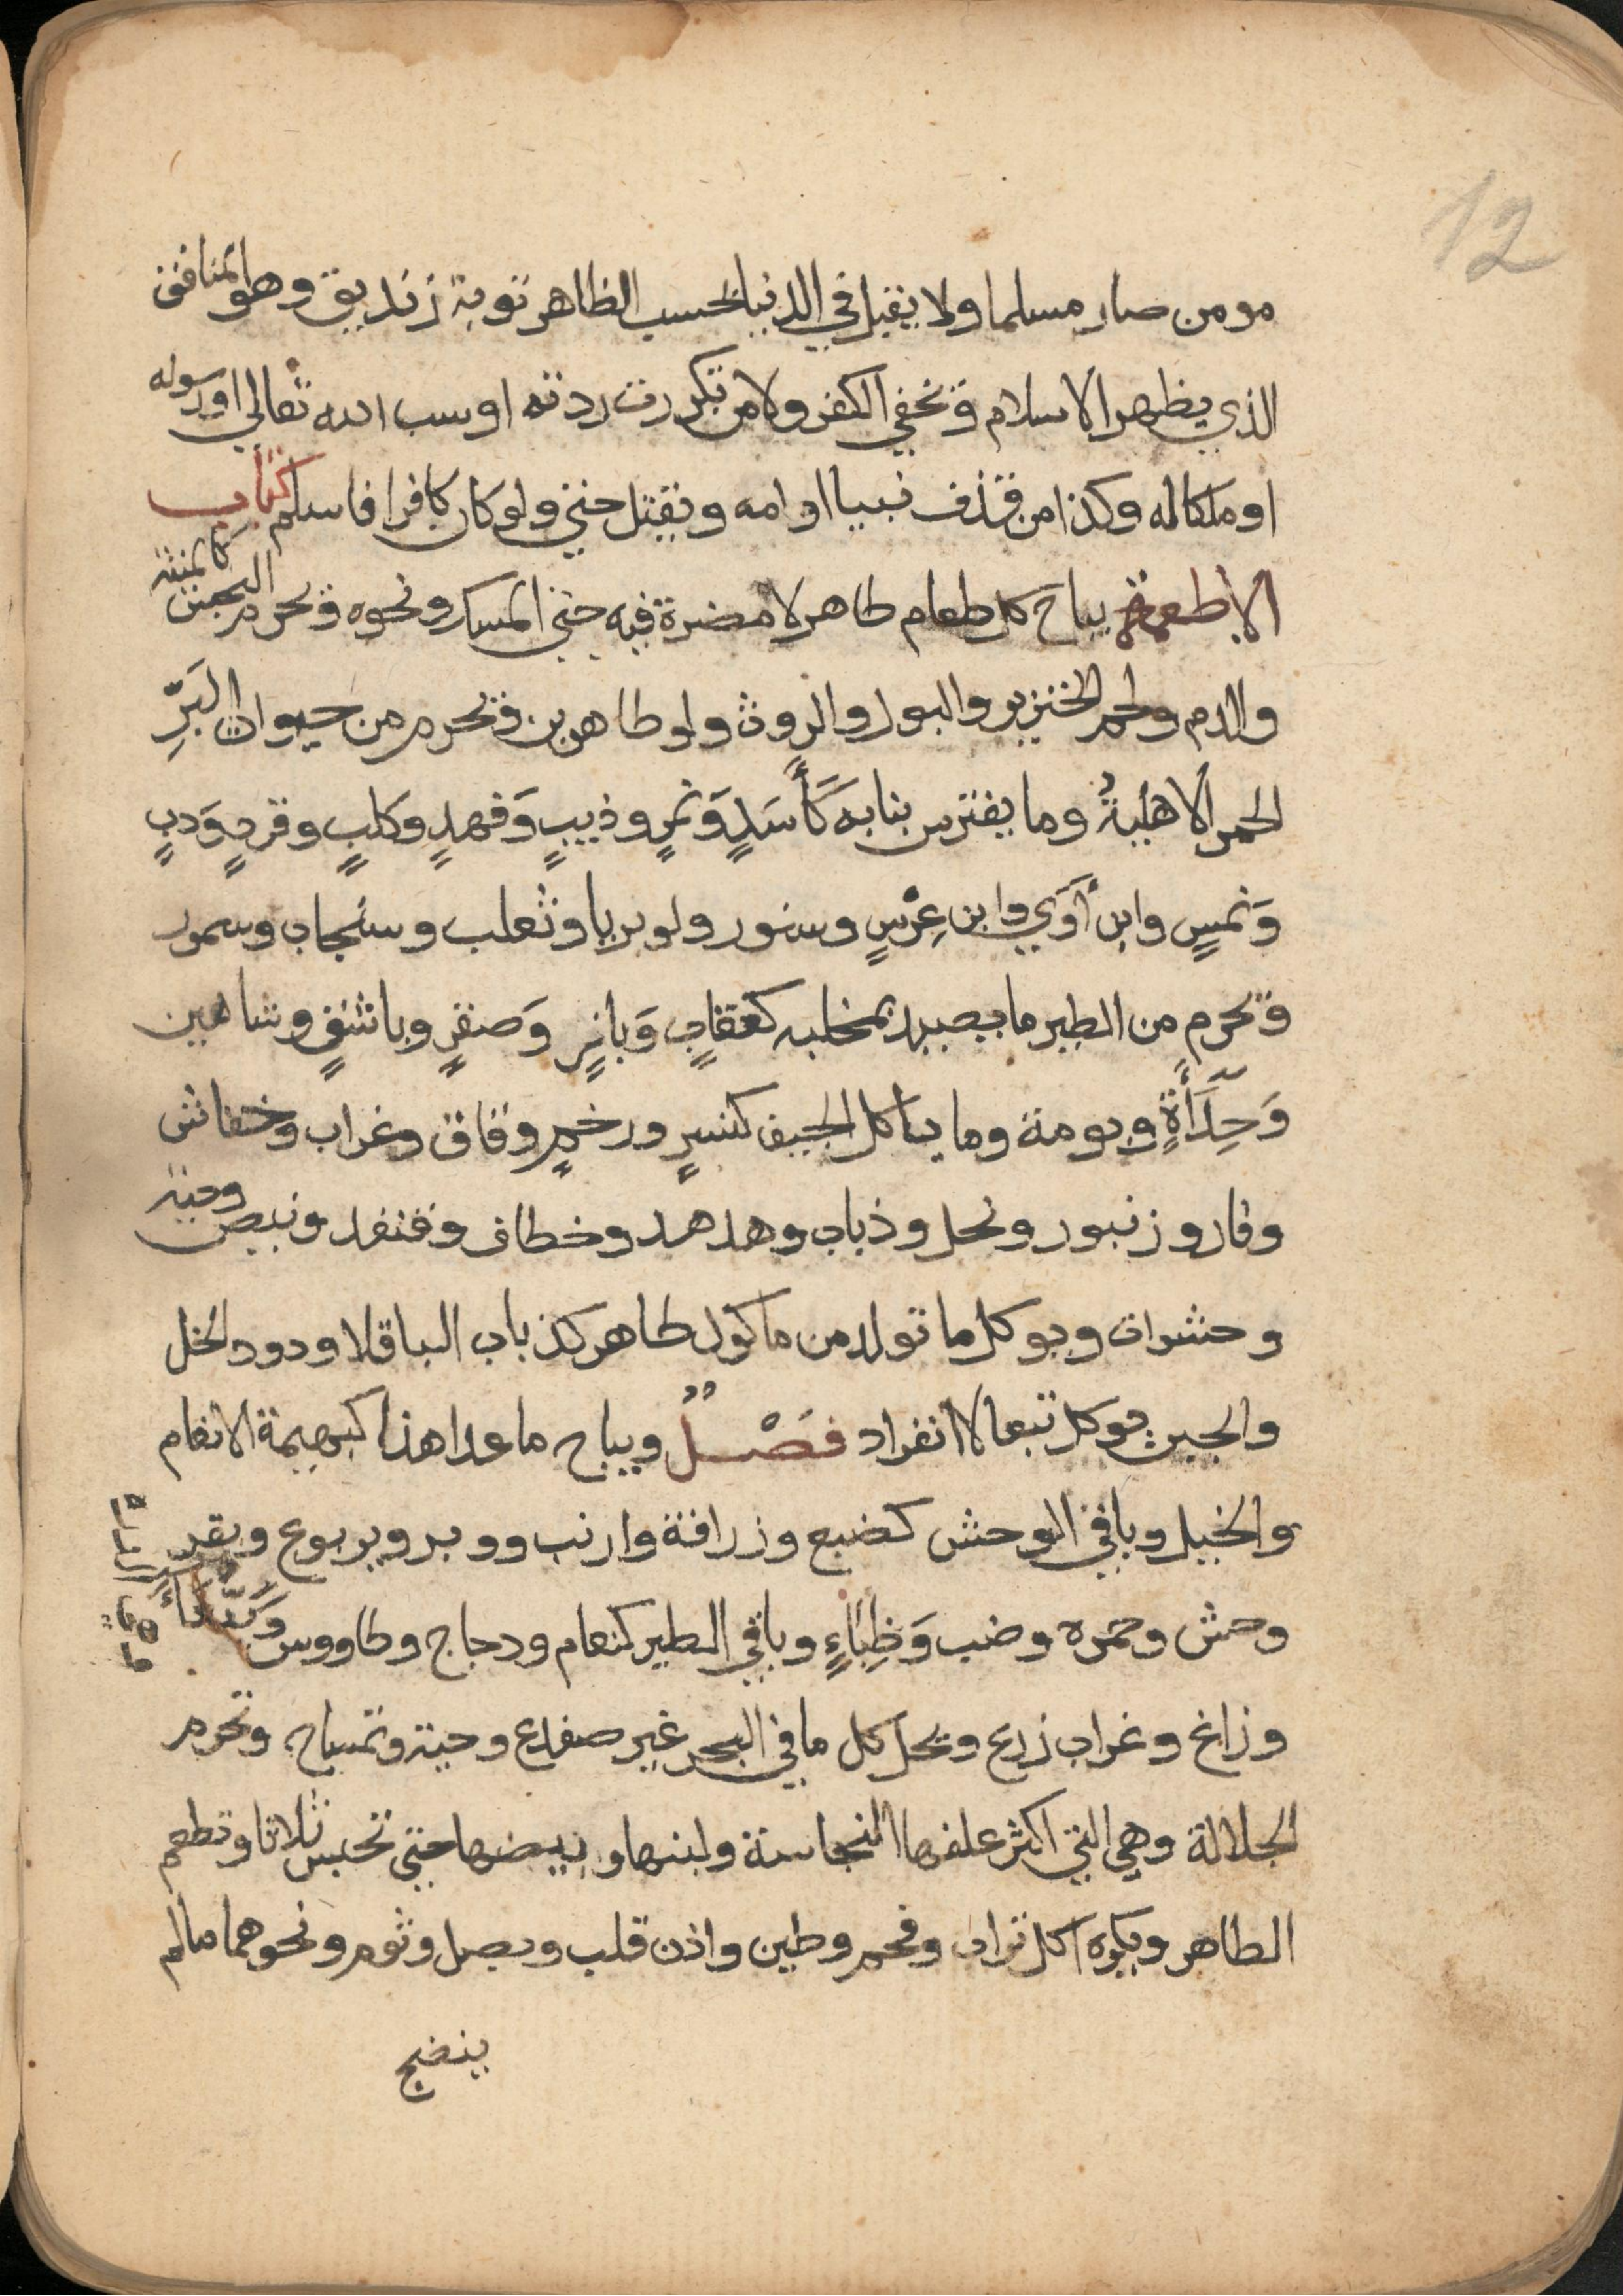 12
مومن صار مسلما ولا يقبل في الدنيا بحسب الظاهر توبة زنديق وهو المنافق
الذي يظهر الاسلام ويخفي الكفر ولا من تكررت ردته او سب الله تعالى او رسوله
او ملكا له وكذا من قذف نبيا او امه ويقتل حتى ولو كان كافرا فاسلم كتاب
الاطعمة يباح كل طعام طاهر لا مضرة فيه حتى المسك ونحوه ويحرم النجس كالميتة
والدم ولحم الخنزير والبول والروث ولو طاهرين ويحرم من حيوان البَرِّ
الحمر الاهليةُ وما يفترس بنابه كَأَسَدٍ وَنمرٍ وذيبٍ وَفهدٍ وكلبٍ وقردٍ وَدبٍ
وَنمسٍ وابن أوَي وابن عِرْسٍ وسنور ولو بريا وثعلب وسنجاب وسمور
ويحرم من الطير ما يصيد بمخلبه كعقابٍ وَبازٍ وَصقرٍ وباشقٍ وشاهين
وَحِدَأَةٍ وبومة وما ياكل الجيف كنسرٍ ورخمٍ وقاق وغراب وخفاش
وفار وزنبور ونحل وذباب وهدهد وخطاف وقنفد ونيص وحية
وحشرات ويوكل ما تولد من ماكول طاهر كذباب الباقلا ودود الخل
والجبن يوكل تبعا لا انفراد فَصْلٌ ويباح ما عدا هذا كبهيمة الانعام
والخيل وباقي الوحش كضبع وزرافة وارنب ووبر ويربوع وبقر
وحش وحمره وضب وَظِبَاءٍ وباقي الطير كنعام ودجاج وطاووس
وزاغ وغراب زرع ويحل كل ما في البحر غير ضفدع وحية وتمساح وتحرم
الجلالة وهي التي اكثر علفها النجاسة ولبنها وبيضها حتى تحبس ثلاثا وتطعم
الطاهر ويكره اكل تراب وفحم وطين واذن قلب وبصل وثوم ونحوهما مالم
ينضج